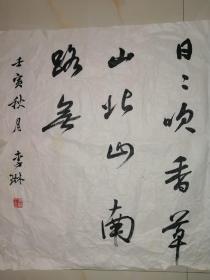 日〻吹香草
山北山南
路无
壬寅秋月 李琳